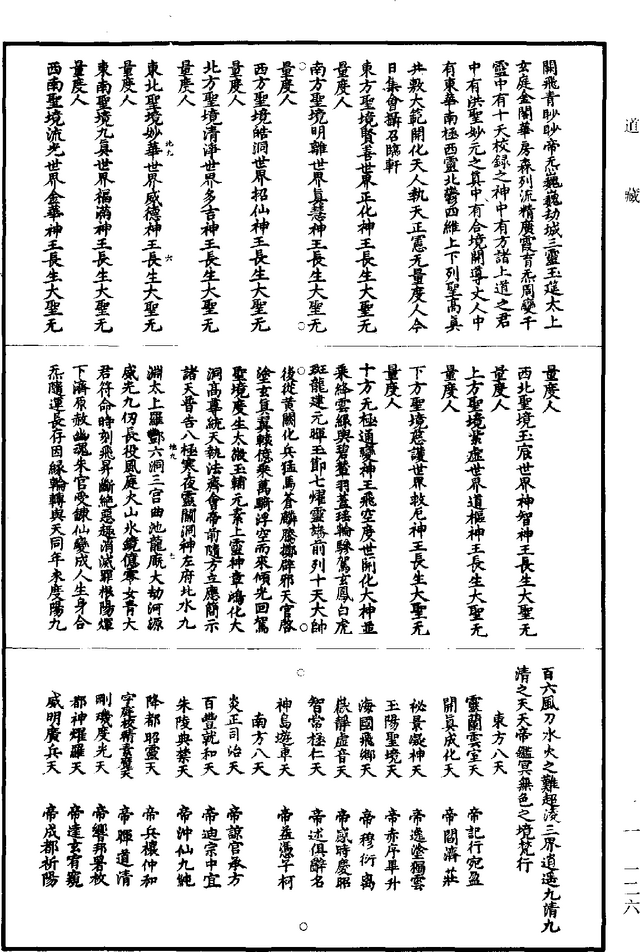 道藏
開飛青眇眇帝炁巍巍劫城三靈玉筵太上
玄庭金闕華房森列流精廣霞育炁周變千
靈中有十天校錄之神中有方諸上道之君
中有洪聖妙元之真中有合境開導丈人中
有東華南極西靈北鬱四維上下列聖高真
共敷大範開化天人執天正憲无量度人今
日集會攝召臨軒
東方聖境賢善世界正化神王長生大聖无
量度人
南方聖境明離世界真慧神王長生大聖无
量度人
西方聖境皓洞世界招仙神王長生大聖无
量度人
北方聖境清淨世界多吉神王長生大聖无
量度人
東北聖境妙華世界威德神王長生大聖无
量度人
東南聖境九真世界福滿神王長生大聖无
量度人
西南聖境流光世界金華神王長生大聖无
量度人
西北聖境玉宸世界神智神王長生大聖无
量度人
上方聖境紫虛世界道樞神王長生大聖无
量度人
下方聖境慈護世界救厄神王長生大聖无
量度人
十方无極道變神王飛空度世開化大神並
乘絳雲綠輿碧鸞羽蓋瑤輪驂駕玄鳳白虎
斑龍建元暉玉節七燿靈旛前列十天大帥
後從黃闕化兵猛馬蒼麟騰擲辟邪天官啓
塗玄真翼轅億乘萬騎浮空而來傾光回駕
聖境度生太微玉輔元素上靈神章鴻化大
洞高尊統天執法齋會帝前隨方立應簡示
諸天普告八極寒夜靈關洞神左府北水九
淵太上羅酆六洞三宮曲池龍廐大劫河源
威光九仞長役風庭火山氷鏡億零女青大
君符命時刻飛昇斷絕惡趣消滅罪根陽煇
下濟原赦幽魂朱官受諫仙變成人生身合
炁隨運長存因緣輪轉與天同年來度陽九
百六風刀水火之難超淩三界逍遙九清九
清之天天帝鑑冥無色之境梵行
東方八天
靈蘭雲室天 帝記行宛盈
開真成化天 帝閻濟莊
祕景凝神天 帝逸塗福雲
玉陽聖境天 帝赤序畢升
海國飛鄉天 帝穆衍离
啟靜虛音天 帝宬時慶昭
智常極仁天 帝述俱辭名
神島遊車天 帝益憑子柯
南方八天
炎正司治天 帝諒官承方
百豐就和天 帝迪宗中宜
朱陵典禁天 帝沖仙九純
降都昭靈天 帝兵禳仲和
帝暉道清
剛璣度光天 帝響邦暑枚
都神燿羅天 帝達玄宥窺
威明廣兵天 帝成都祈陽
一 一二六